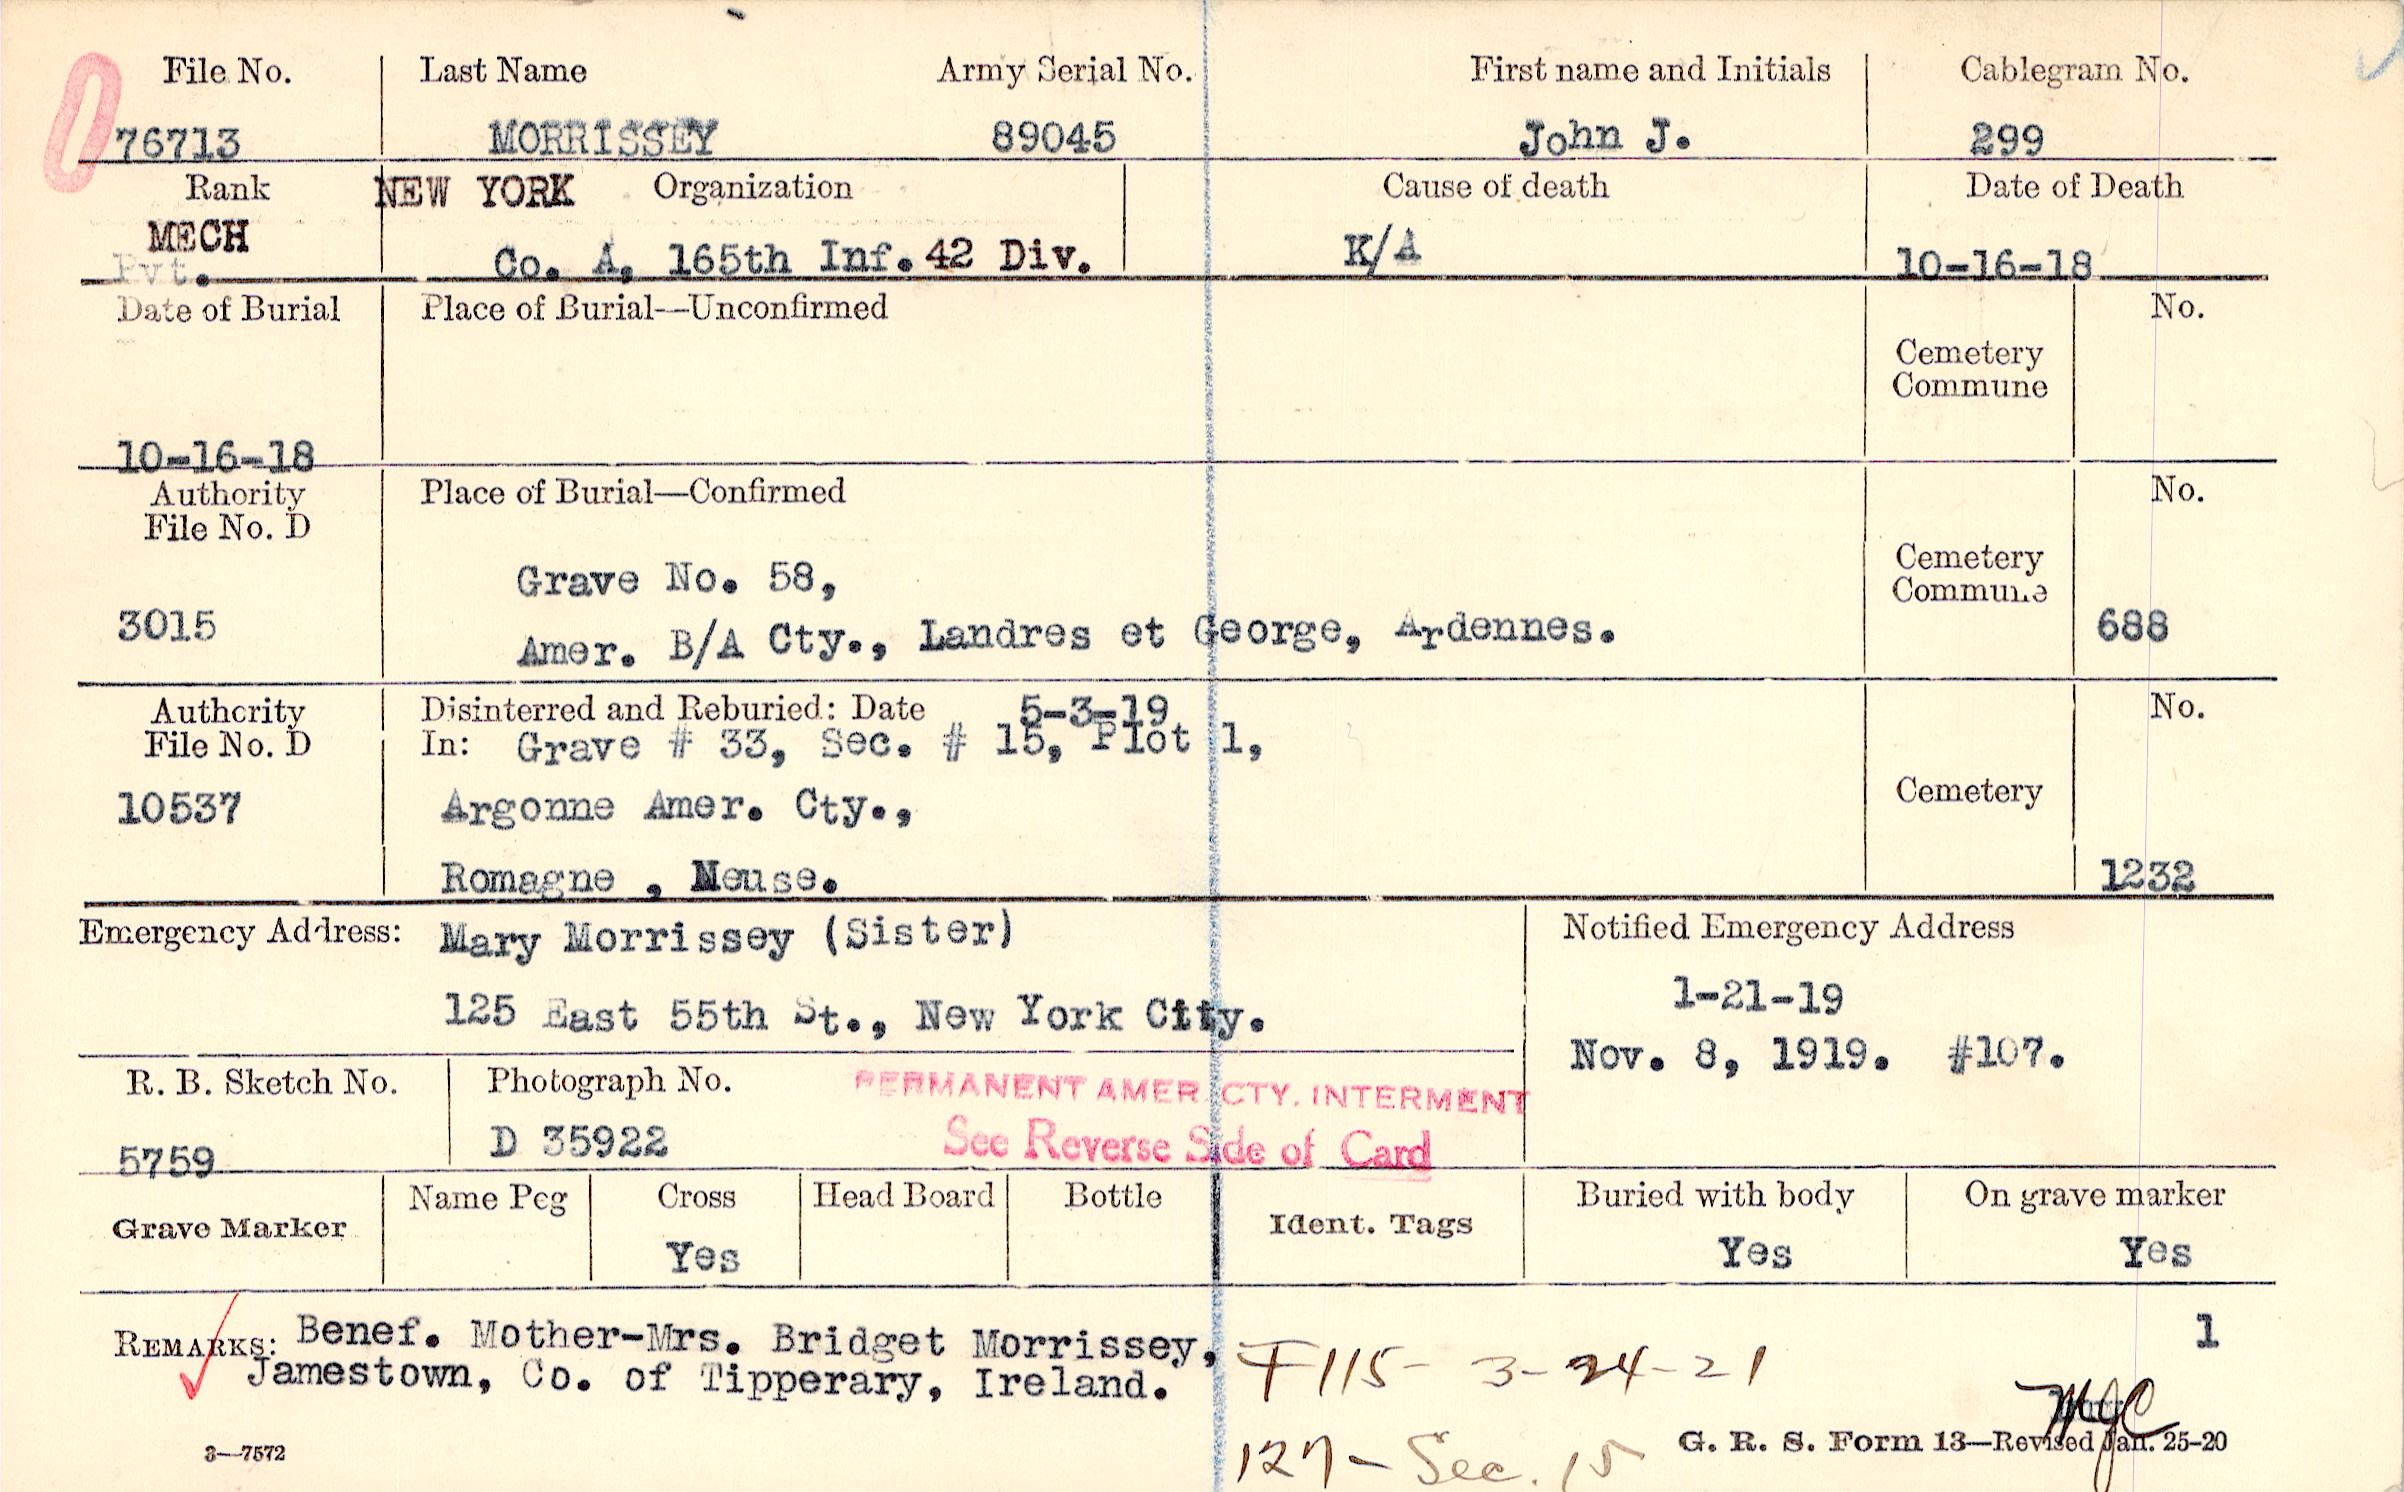 File No. Last Name Army Serial No. First name and Initials Cablegram No.
76713 MORRISSEY 89045 John J. 299
Rank NEW YORK Organization Cause of death Date of Death
MECH
Pvt. Co. A, 165th Inf. 42 Div. K/A 10-16-18
Date of Burial Place of Burial—Unconfirmed No.
Cemetery
Commune
10-16-18
Authority Place of Burial—Confirmed No.
File No. D
Grave No. 58, Cemetery
Commune
3015 Amer. B/A Cty., Landres et George, Ardennes. 688
Authority Disinterred and Reburied: Date 5-3-19 No.
File No. D In: Grave # 33, Sec. # 15, Plot 1,
10537 Argonne Amer. Cty., Cemetery
Romagne , Meuse. 1232
Emergency Address: Mary Morrissey (Sister) Notified Emergency Address
125 East 55th St., New York City. 1-21-19
Nov. 8, 1919. #107.
R. B. Sketch No. Photograph No. PERMANENT AMER. CTY. INTERMENT
5759 D 35922 See Reverse Side of Card
Grave Marker Name Peg Cross Head Board Bottle Ident. Tags Buried with body On grave marker
Yes Yes Yes
REMARKS: Benef. Mother-Mrs. Bridget Morrissey, 1
Jamestown, Co. of Tipperary, Ireland. F115- 3-24-21
MJC
3—7572 127- Sec. 15 G. R. S. Form 13—Revised Jan. 25-20